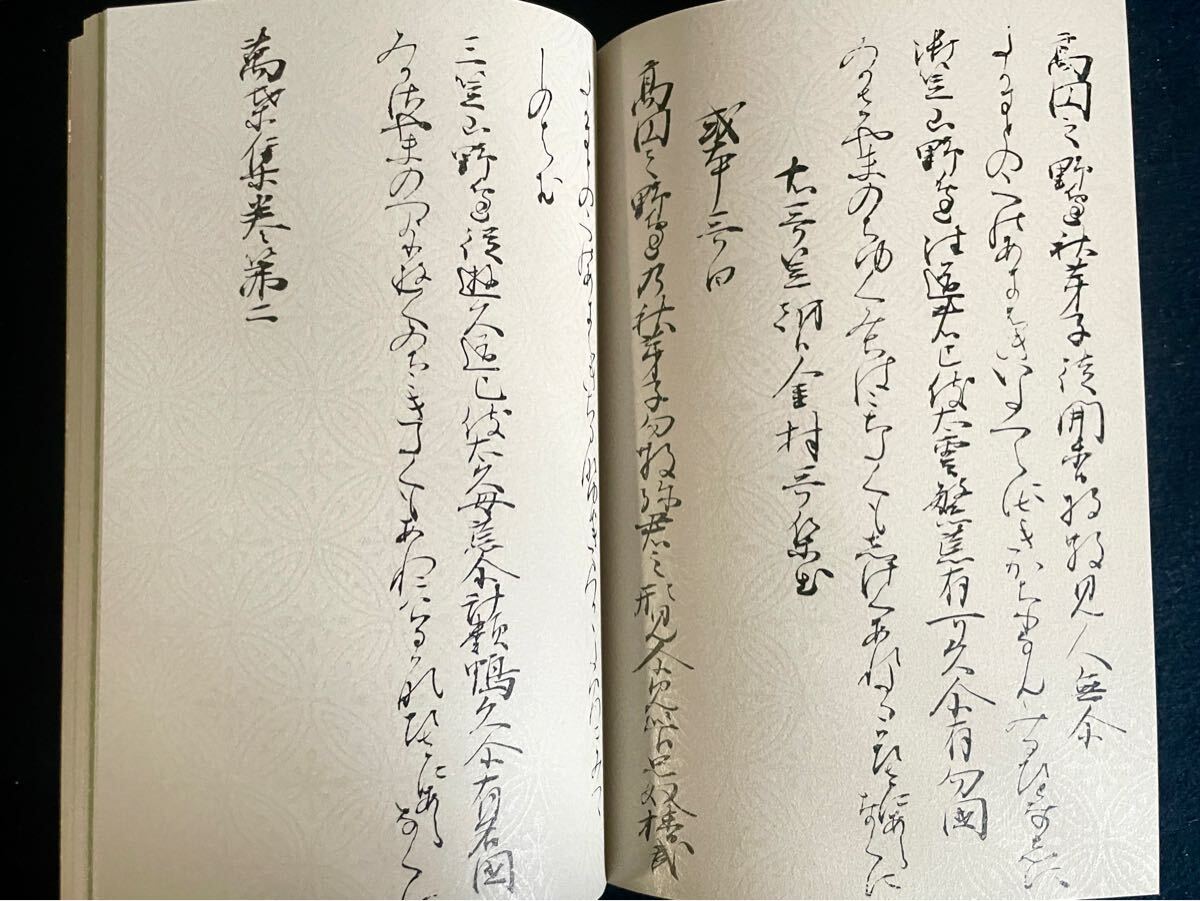 高圓之野邊秋芽子徒開香将散見人無尓
たかまとののへのあきはきいたつらにさきかちるらんみるひとなしに
御笠山野邊徃道者己伎太雲繁荒有可久尓有勿國
みかさやまのへゆくみちはこきたくもしけくあれたるかひさにあらなくに
右哥笠朝臣金村哥集出
或本哥曰
高圓之野邊乃秋芽子勿散祢君之形見尓見管思奴播武
しのはむ
三笠山野邊従遊久道己伎太久母荒尓計類鴨久尓有名國
みかさやまのへゆくみちこきたくもあれにけるかもひさにあらなくに
萬葉集巻第二